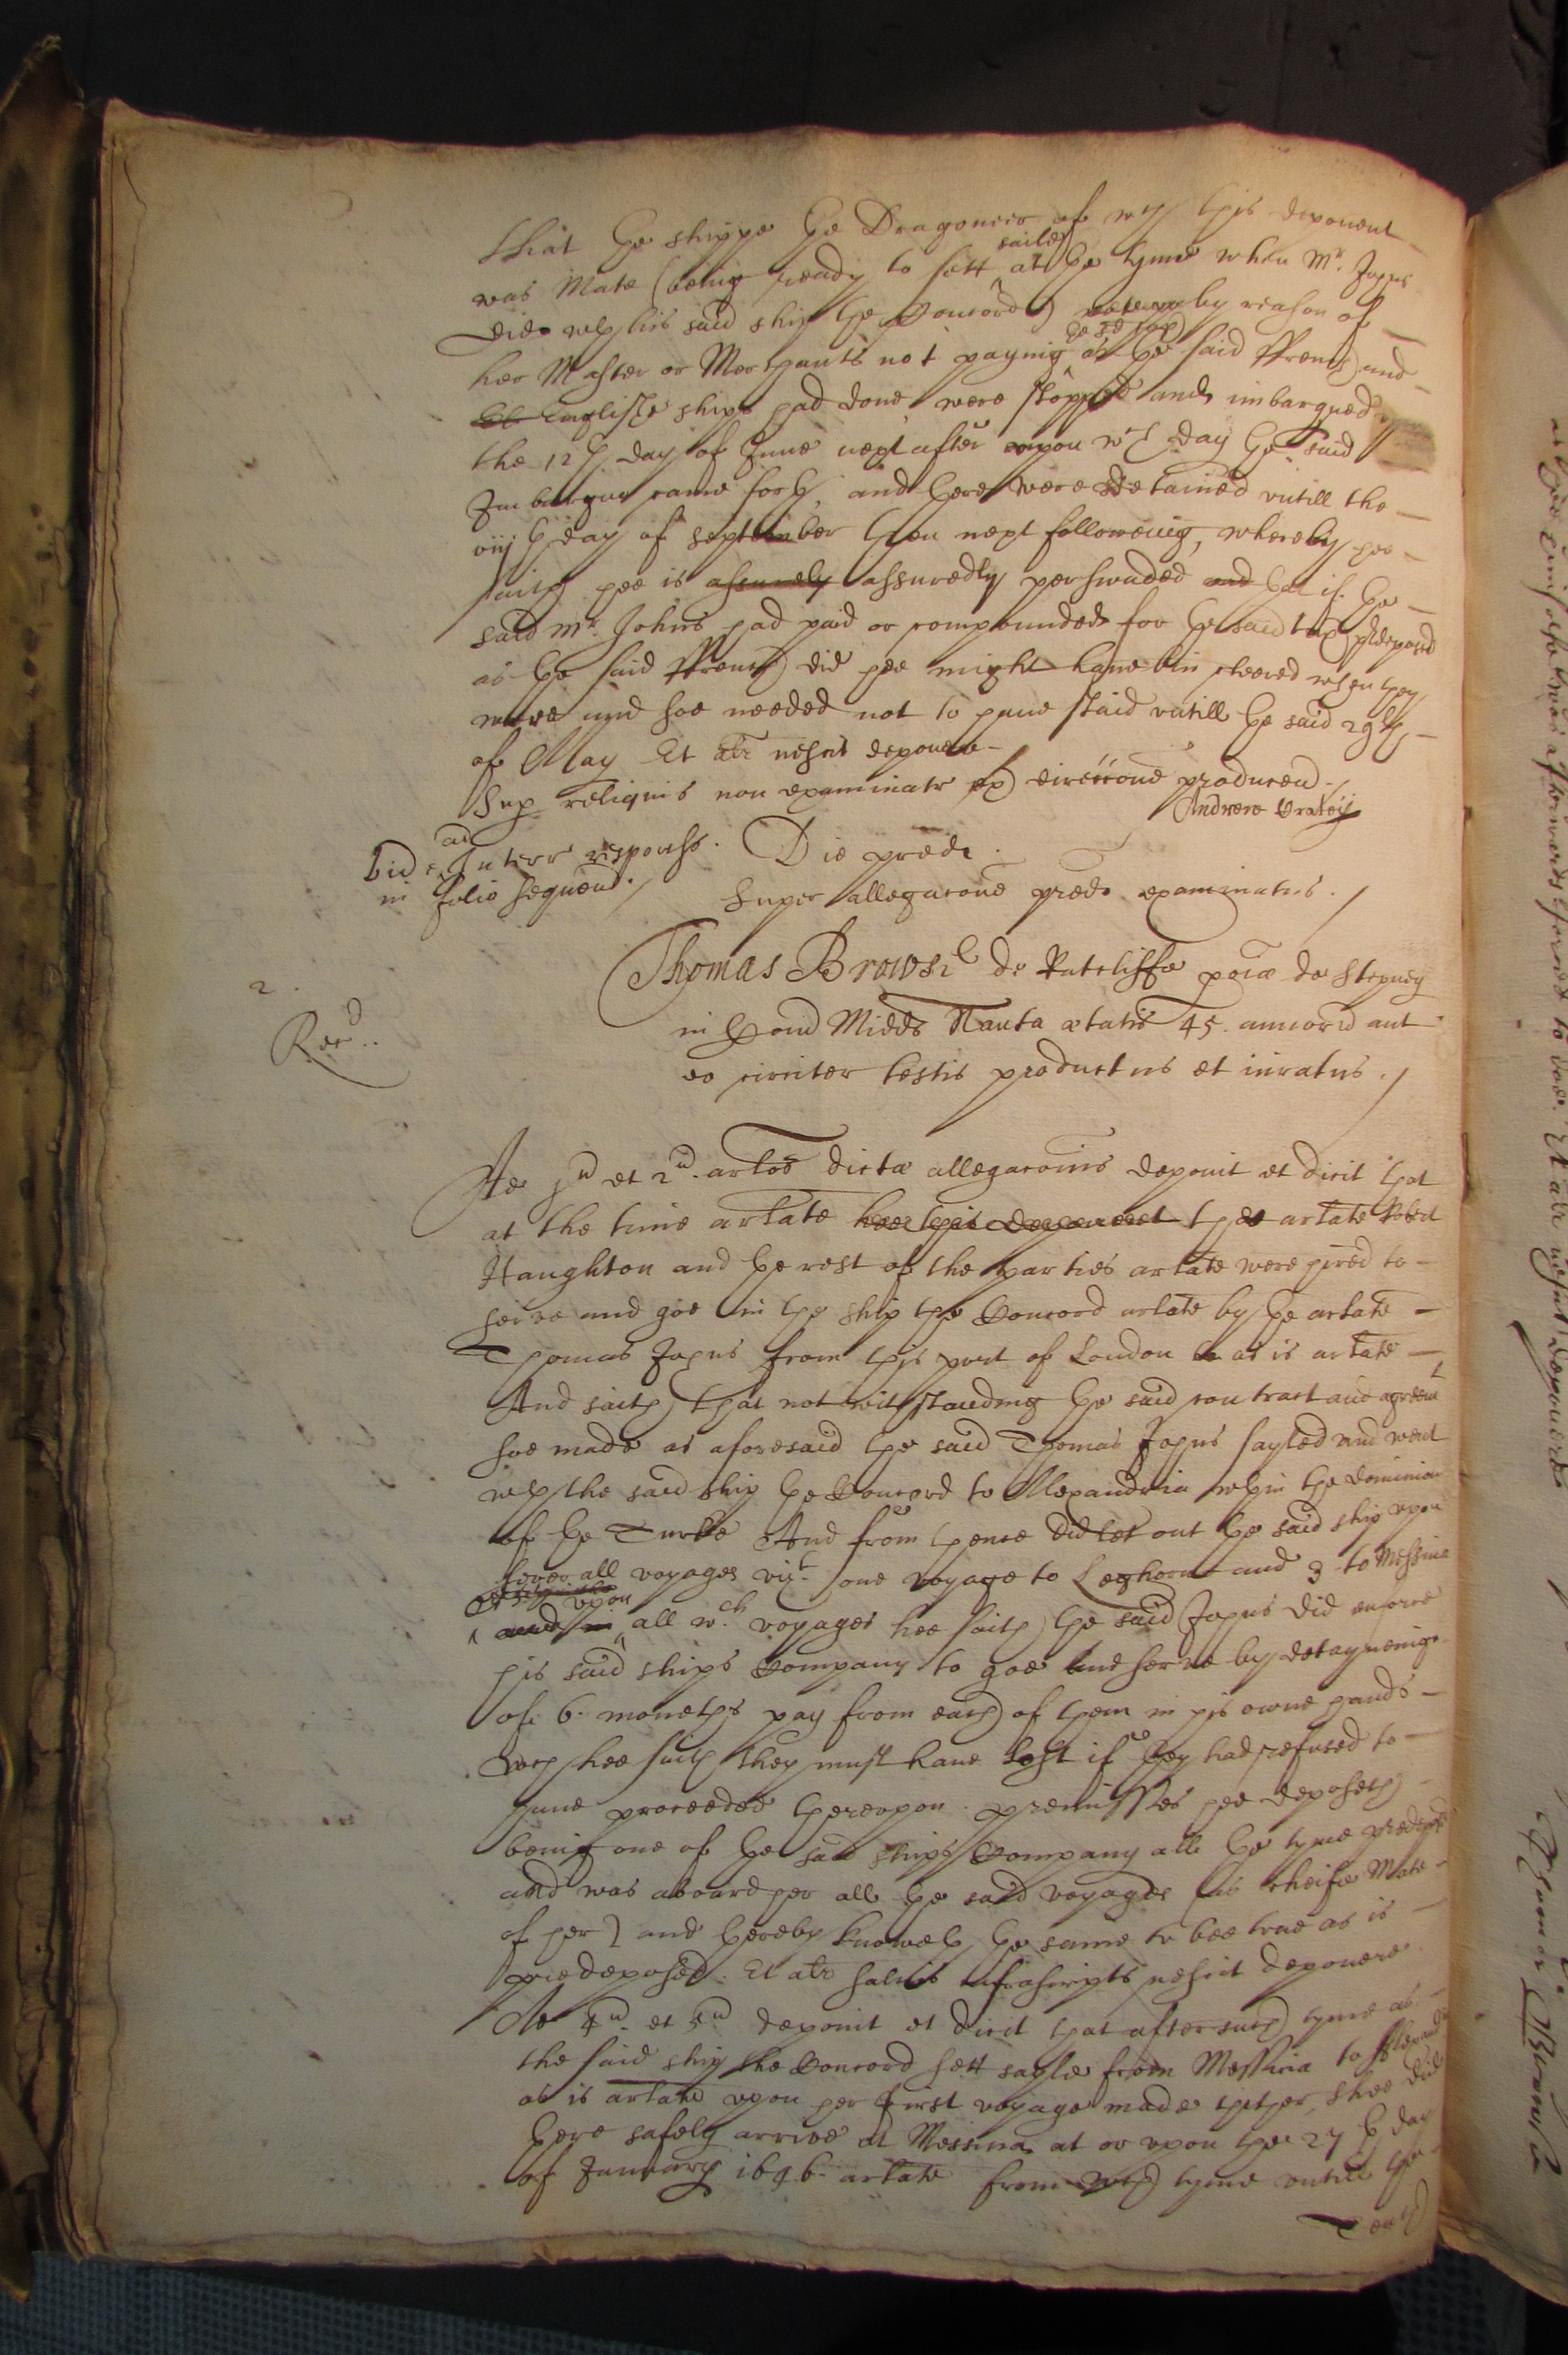 that the shippe the Dragoneere of wch this deponent
was Mate (being ready to sett ^sailes at the tyme when Mr. Johns
did wth his said ship the Concord) by reason of
her Master or Merchants not paying ^the sd tax as the said Ffrench and
English ships had done were stopped and imbarqued
the 12th day of June next after vpon wch day the said
Imbargue came forth, and there were detained vntill the
viijth day of September then next followeing, whereby hee
saith hee is assurely assuredly perswaded and that if the
said Mr. Johns had paid or compounded for the said tax predeposed
as the said Ffrench did hee might haue bin cleered when they
were and soe needed not to haue staid vntill the said 29th
of May Et alr nescit deponere
Sup reliquis non examinatr ex direccone producen
Andrew Bratey
vide ad Interr respons.
in folio sequen.
Die pred.
Super allegacone pred. examinatus.
2.
Rowd.
Thomas Browne de Ratcliffe pocæ de Stepney
in Com Midds Nauta ætatis 45. annorū aut
eo circiter testis productus et iuratus.
Ad pm et 2m. artos dictæ allegaconis deponit et dicit that
at the time artate hee this deponent the artate Robert
Haughton and the rest of the parties artate were hired to
serve and goe in the ship the Concord artate by the artate
Thomas Johns from this port of London as is artate
And saith that notwithstanding the said contract and agreemt
soe made as aforesaid the said Thomas Johns sayled and went
wth the said ship the Concord to Allexandria wthin the dominion
of the Turke And from thence did let out the said ship vpon
severall voyages vizt. one voyage to Leghorne and 3 to Messina
and in ^vpon all wch voyages hee saith the said Johns did enforce
his said ships Company to goe and serve by detayneinge
of 6. moneths pay from each of them in his owne hands
wch hee saith they must haue lost if they had refused to
haue proceeded therevpon. premisses hee deposeth
being one of the said ships Company all the tyme predeposed
and was aboard her all the said voyages (as cheife Mate
of her) and thereby knoweth the same to bee true as is
predeposed. Et alr salvis infrascripts nescit deponere
Ad 4m. et 5m deponit et dicit that after such tyme as
the said ship the Concord sett sayle from Messina to Allexandria
as is artate vpon her first voyage made thither, shee did
there safely arrive at Messina at or vpon the 27th day
of January 1646. artate from wch tyme vntill the